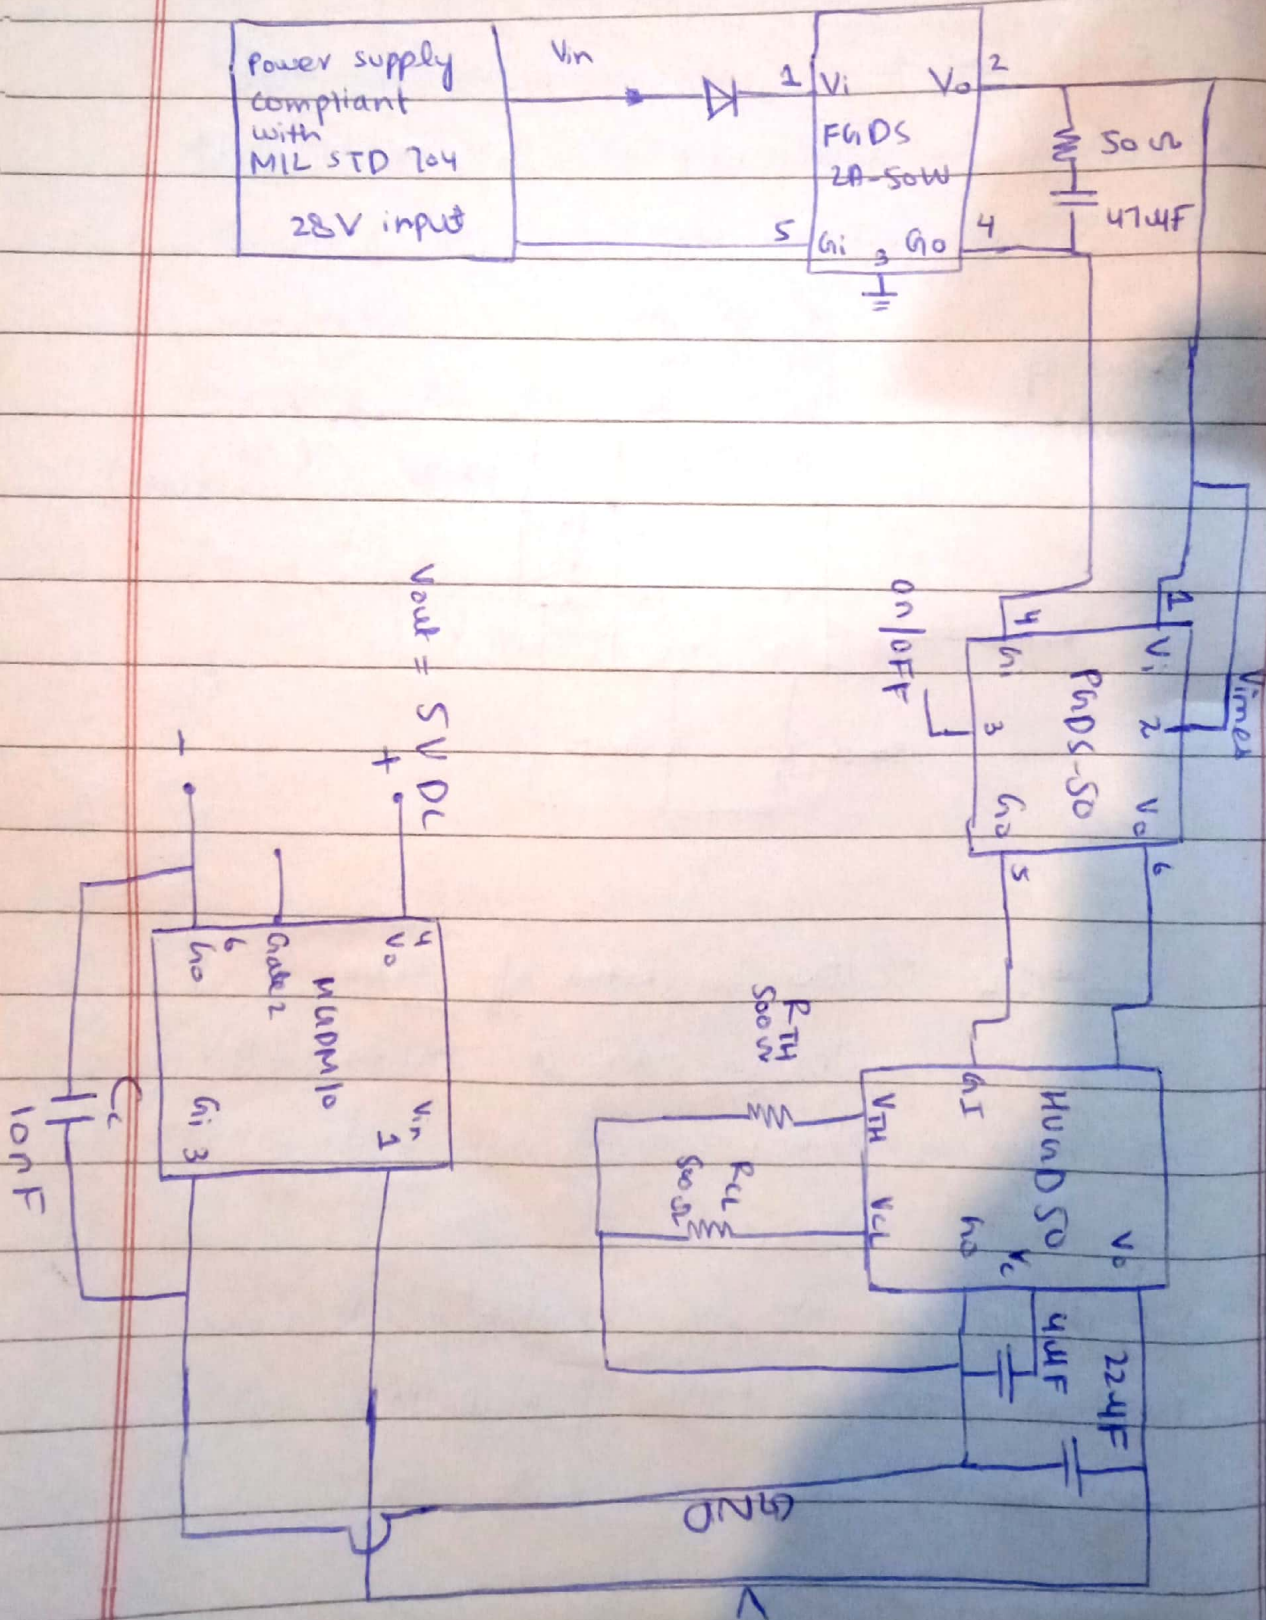 Power supply
compliant
with
MIL STD 704
28V input
Vin
1
Vi
Vo
2
FGDS
2A-50W
5
Gi
3
Go
4
50Ω
47μF
Vimes
1
4
Vi
Gi
PGDS-50
2
3
On/OFF
Vo
Go
6
5
GI
HUGD50
VTH
VCL
RTH
500Ω
RCL
500Ω
Go
Vc
Vo
4μF
22μF
GND
V
Vout = 5V DC
+
-
4
Vo
Gate2
6
Go
MGDM10
Vin
1
Gi 3
Cc
10nF